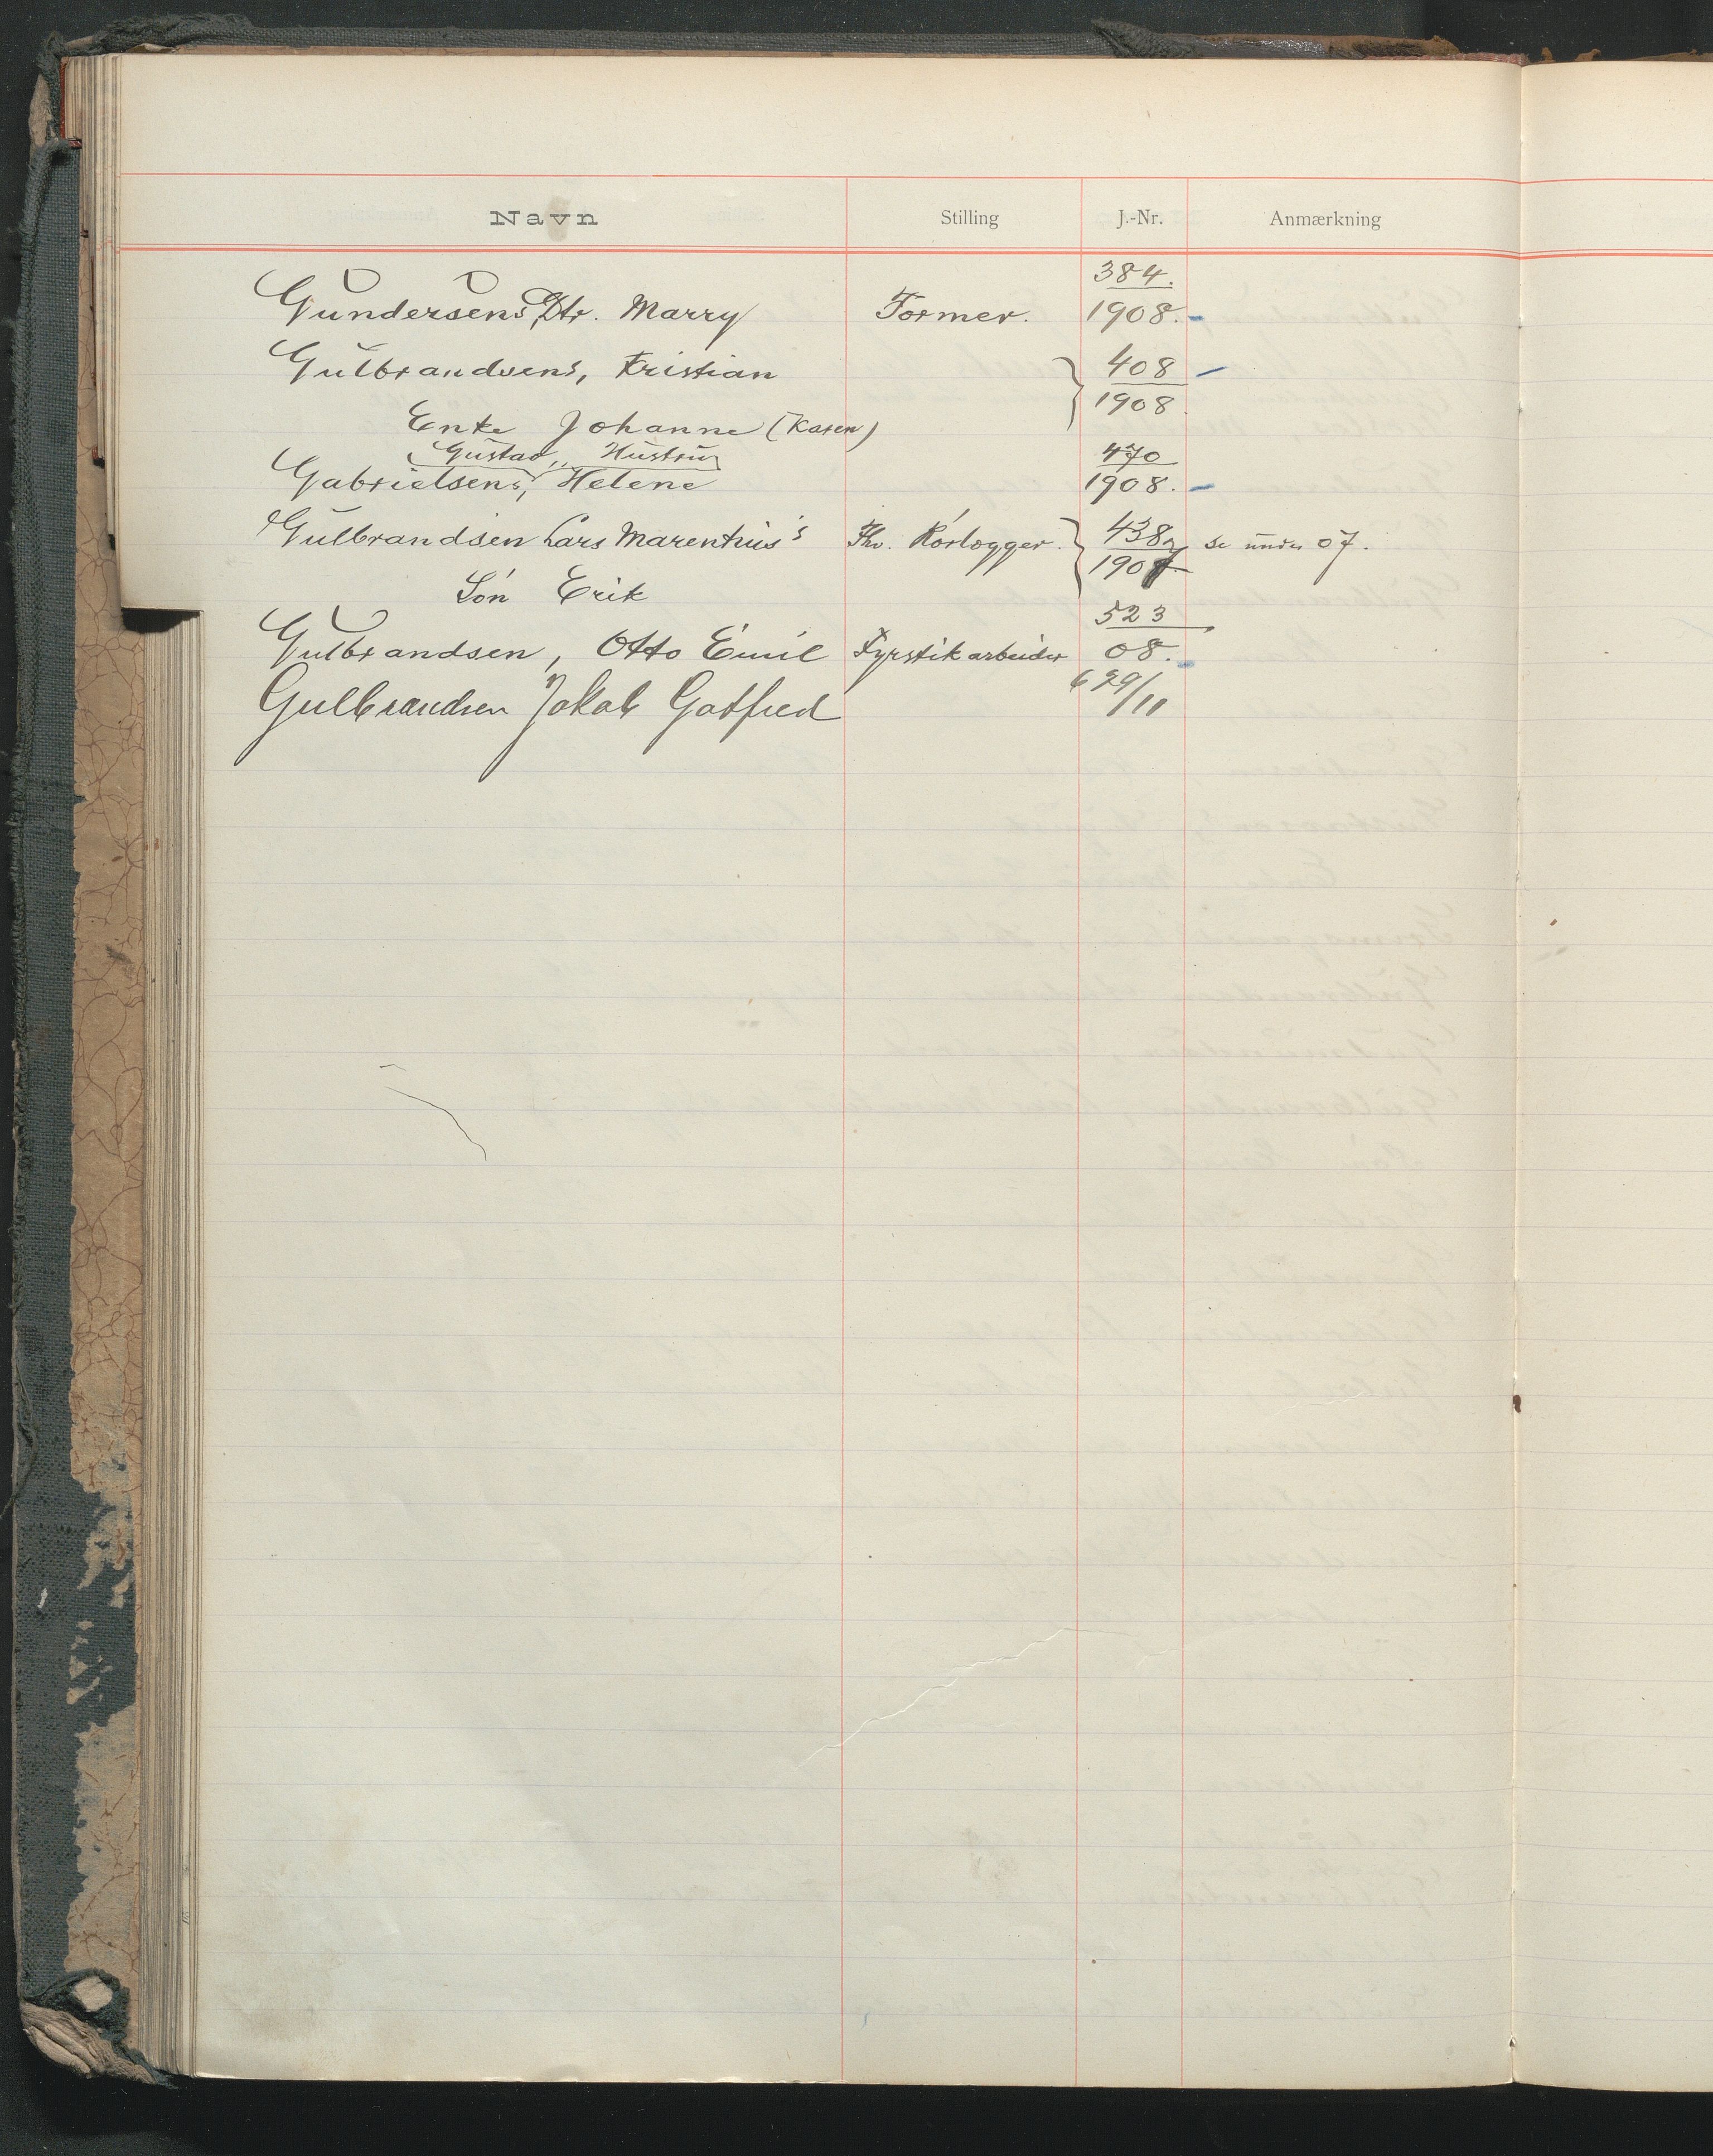 Navn Stilling J.-Nr. Anmærkning
384.
Gundersens, Dtr. Marry Former. 1908. -
Gulbrandsens, Kristian 408 -
1908
Enke Johanne (Karen)
Gustav, Hustru 470
Gabrielsens, Helene 1908. -
Gulbrandsen Lars Marenthius's Fhv. Rørlægger. 438 se under 07.
1907
Søn Erik
523
Gulbrandsen, Otto Emil Fyrstikarbeider 08.
Gulbrandsen Jakob Gotfred 629/11